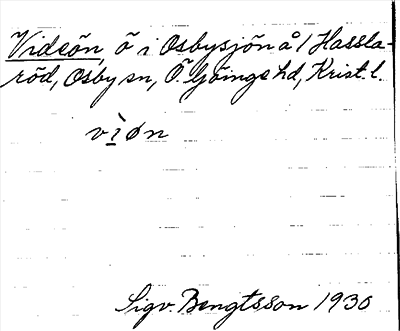 Videön, ö i Osbysjön å l Hassla-
röd, Osby sn, Ö. Göinge hd, Krist. l.
vìøn
Sigv. Bengtsson 1930